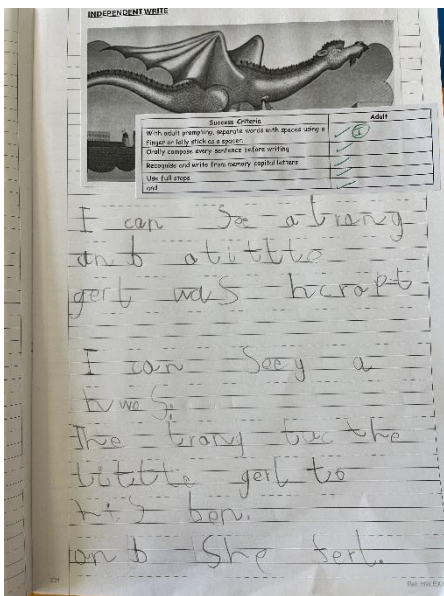 INDEPENDENT WRITE
Success Criteria
Adult
With adult prompting, separate words with spaces using a finger or lolly stick as a spacer.
I
Orally compose every sentence before writing
Recognise and write from memory capital letters
Use full stops
and
I can See a trang
an b a tittto
gerl was hcrapt
I can Seey a
hwos.
The trang tuc the
titttle gerl to
his ben.
an b She ferl.